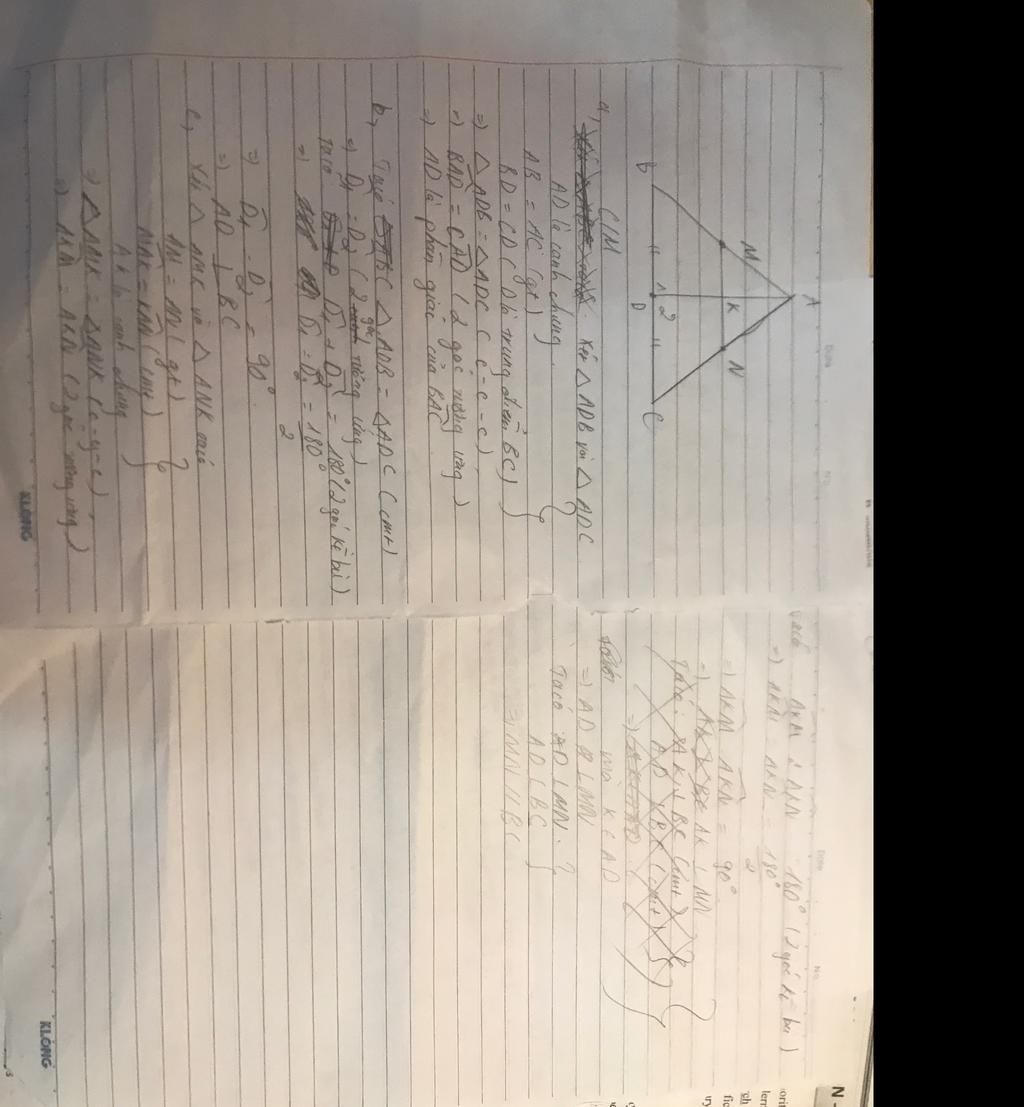 A
M
N
K
B
1
2
D
C
CM
a, Xét △ ADB và △ ADC
AD là cạnh chung
AB = AC (gt)
BD = CD (D là trung điểm BC)
=> △ ADB = △ ADC (c-c-c)
=> BAD = CAD (2 góc tương ứng)
=> AD là phân giác của BAC
b, Ta có △ ADB = △ ADC (cmt)
=> D1 = D2 (2 góc tương ứng)
Ta có D1 + D2 = 180° (2 góc kề bù)
=> D1 = D2 = 180°
2
=> D1 = D2 = 90°
=> AD ⊥ BC
c, Xét △ AMK và △ ANK có
AM = AN (gt)
MAK = KAN (cmt)
AK là cạnh chung
=> △ AMK = △ ANK (c-g-c)
=> AKM = AKN (2 góc tương ứng)
KLONG
Date
No.
AKM + AKN = 180° (2 góc kề bù)
=> AKM = AKN = 180°
2
=> AKM = AKN = 90°
=> AK ⊥ MN
mà K ∈ AD
=> AD ⊥ MN
Ta có AD ⊥ MN
AD ⊥ BC
=> MN // BC
KLONG